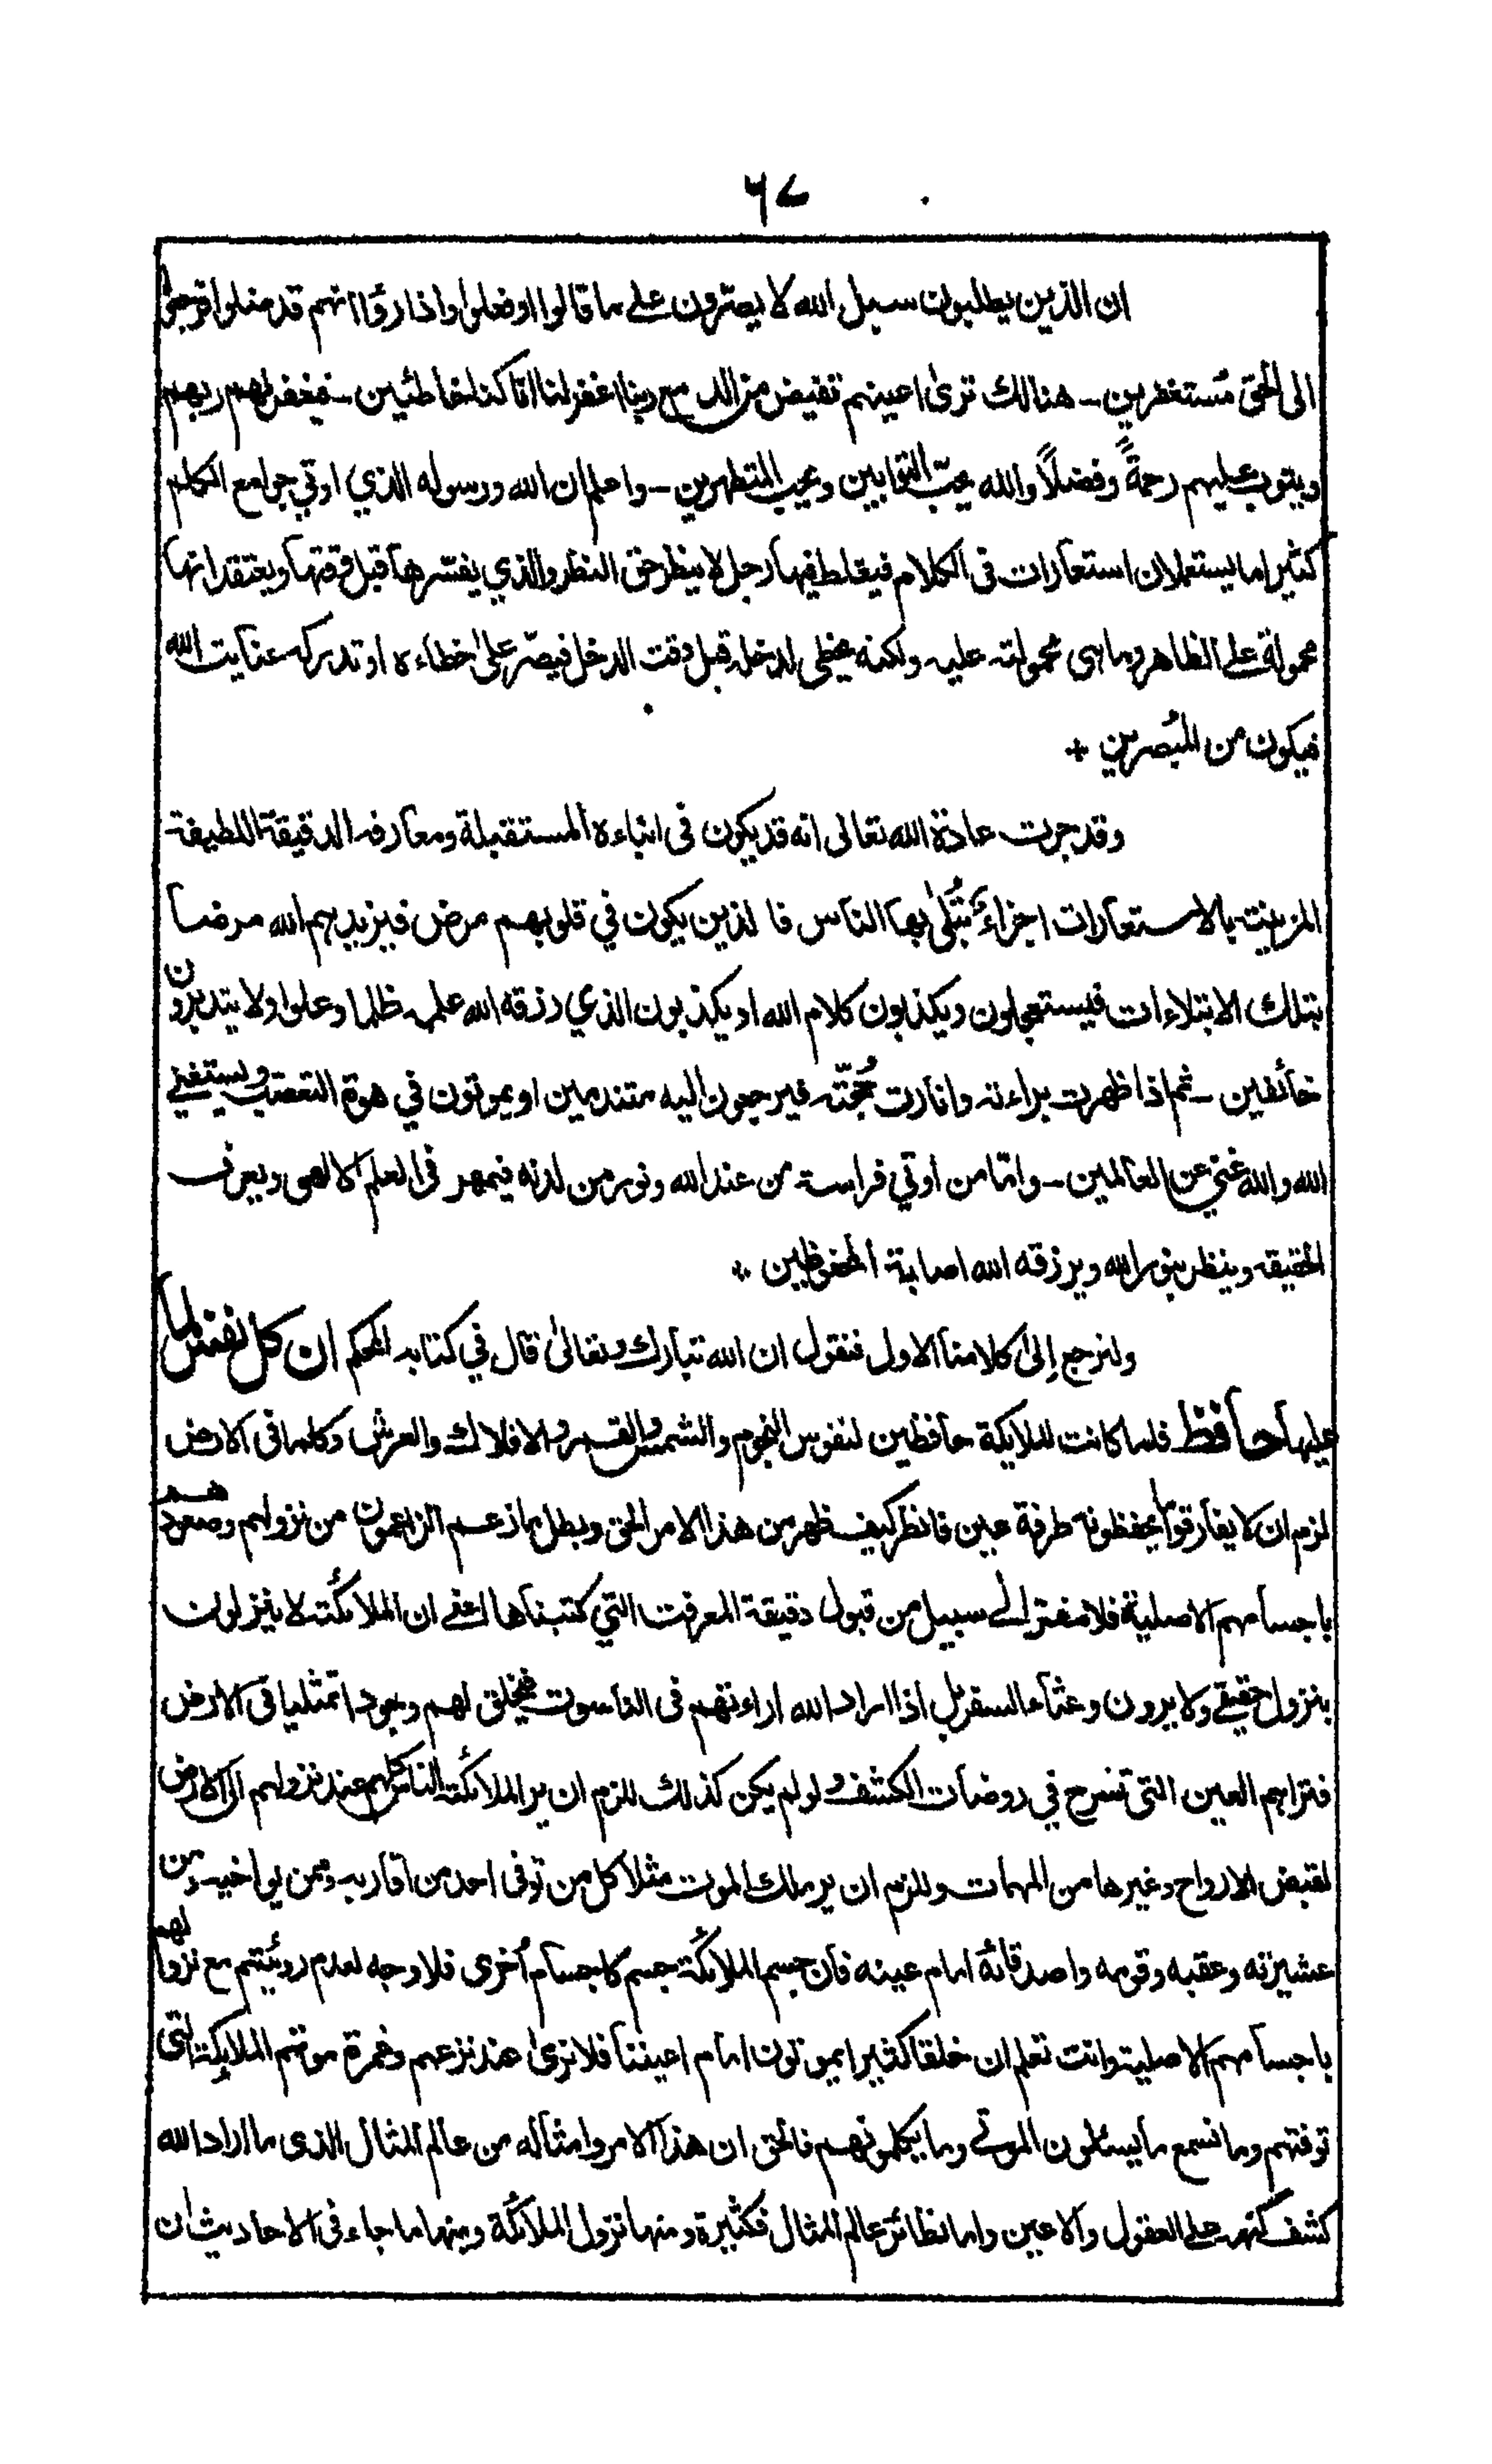 ٦٧
ان الذين يطلبون سبيل الله لا يصرّون على ما قالوا او فعلوا واذا رؤا انهم قد ضلوا فرجعوا
الى الحق مُستغفرين - هنالك ترىٰ اعينهم تفيض من الدمع ربنا اغفر لنا انّا كنا خاطئين - فيغفر لهم ربهم
ويتوب عليهم رحمةً وفضلاً والله يحبّ التوابين ويحب المتطهرين - واعلم ان الله ورسوله الذي اوتي جوامع الكلم
كثيرا ما يستعملان استعارات فى الكلام فيغلط فيها رجل لا ينظر حق النظر والذي يفسّرها قبل وقتها ويعتقد انها
محمولة على الظاهر وما هى محمولة عليه ولكنه يخطى لدخله قبل وقت الدخل فيصرّ علىٰ خطاءه او تدركه عنايت الله
فيكون من المُبصرين +
وقد جرت عادة الله تعالى انه قد يكون فى انباءه المستقبلة ومعارفه الدقيقة اللطيفة
المزينة بالاستعارات اجزاءٌ يُبتلىٰ بها الناس فالذين يكون في قلوبهم مرض فيزيدهم الله مرضا
بتلك الابتلاءات فيستعجلون ويكذبون كلام الله او يكذبون الذي رزقه الله علمه ظلما وعلوا ولا يتدبرون
خائفين - ثم اذا ظهرت براءته وانارت حُجّته فيرجعون اليه متندمين او يموتون في هوة التعصب ويستغني
الله والله غني عن العالمين - وامّا من اوتي فراسة من عند الله ونور من لدنه فيمهر فى العلم الالهى ويعرف
الحقيقة وينظر بنور الله ويرزقه الله اصابة المحفوظين +
ولنرجع إلىٰ كلامنا الاول فنقول ان الله تبارك وتعالىٰ قال في كتابه المحكم ان كل نفس لما
عليها حافظ فلما كانت الملايكة حافظين لنفوس النجوم والشمس والقمر والافلاك والعرش وكلما فى الارض
لزم ان لا يفارقوا ما يحفظونه طرفة عين فانظر كيف ظهر من هذا الامر الحق وبطل ما زعم الزاعمون من نزولهم وصعودهم
باجسامهم الاصلية فلا مفتر الى سبيل من قبول دقيقة المعرفت التي كتبناها اعني ان الملائكة لا ينزلون
بنزول حقيقي ولا يرون وعثاء السفر بل اذا اراد الله اراءتهم فى الناسوت فيخلق لهم وجودا تمثليا فى الارض
فتراهم العين التى تسرح في روضات الكشف ولو لم يكن كذلك للزم ان ير الملائكة الناس كلهم عند نزولهم الى الارض
لقبض الارواح وغيرها من المهمات وللزم ان ير ملك الموت مثلا كل من توفى احد من اقاربه وممن يواخيه ومن
عشيرته وعقبه وقومه واصدقائه امام عينه فان جسم الملائكة جسم كاجسام اُخرى فلا وجه لعدم رويئتهم مع نزولهم
باجسامهم الاصلية وانت تعلم ان خلقا كثيرا يموتون امام اعيننا فلا نرىٰ عند نزعهم وغمرة موتهم الملايكة التى
توفتهم وما نسمع ما يسئلون الموتى وما يكلمونهم فالحق ان هذا الامر وامثاله من عالم المثال الذى ما اراد الله
كشف كنهه على العقول والاعين واما نظائر عالم المثال فكثيرة ومنها نزول الملائكة ومنها ما جاء فى الاحاديث ان